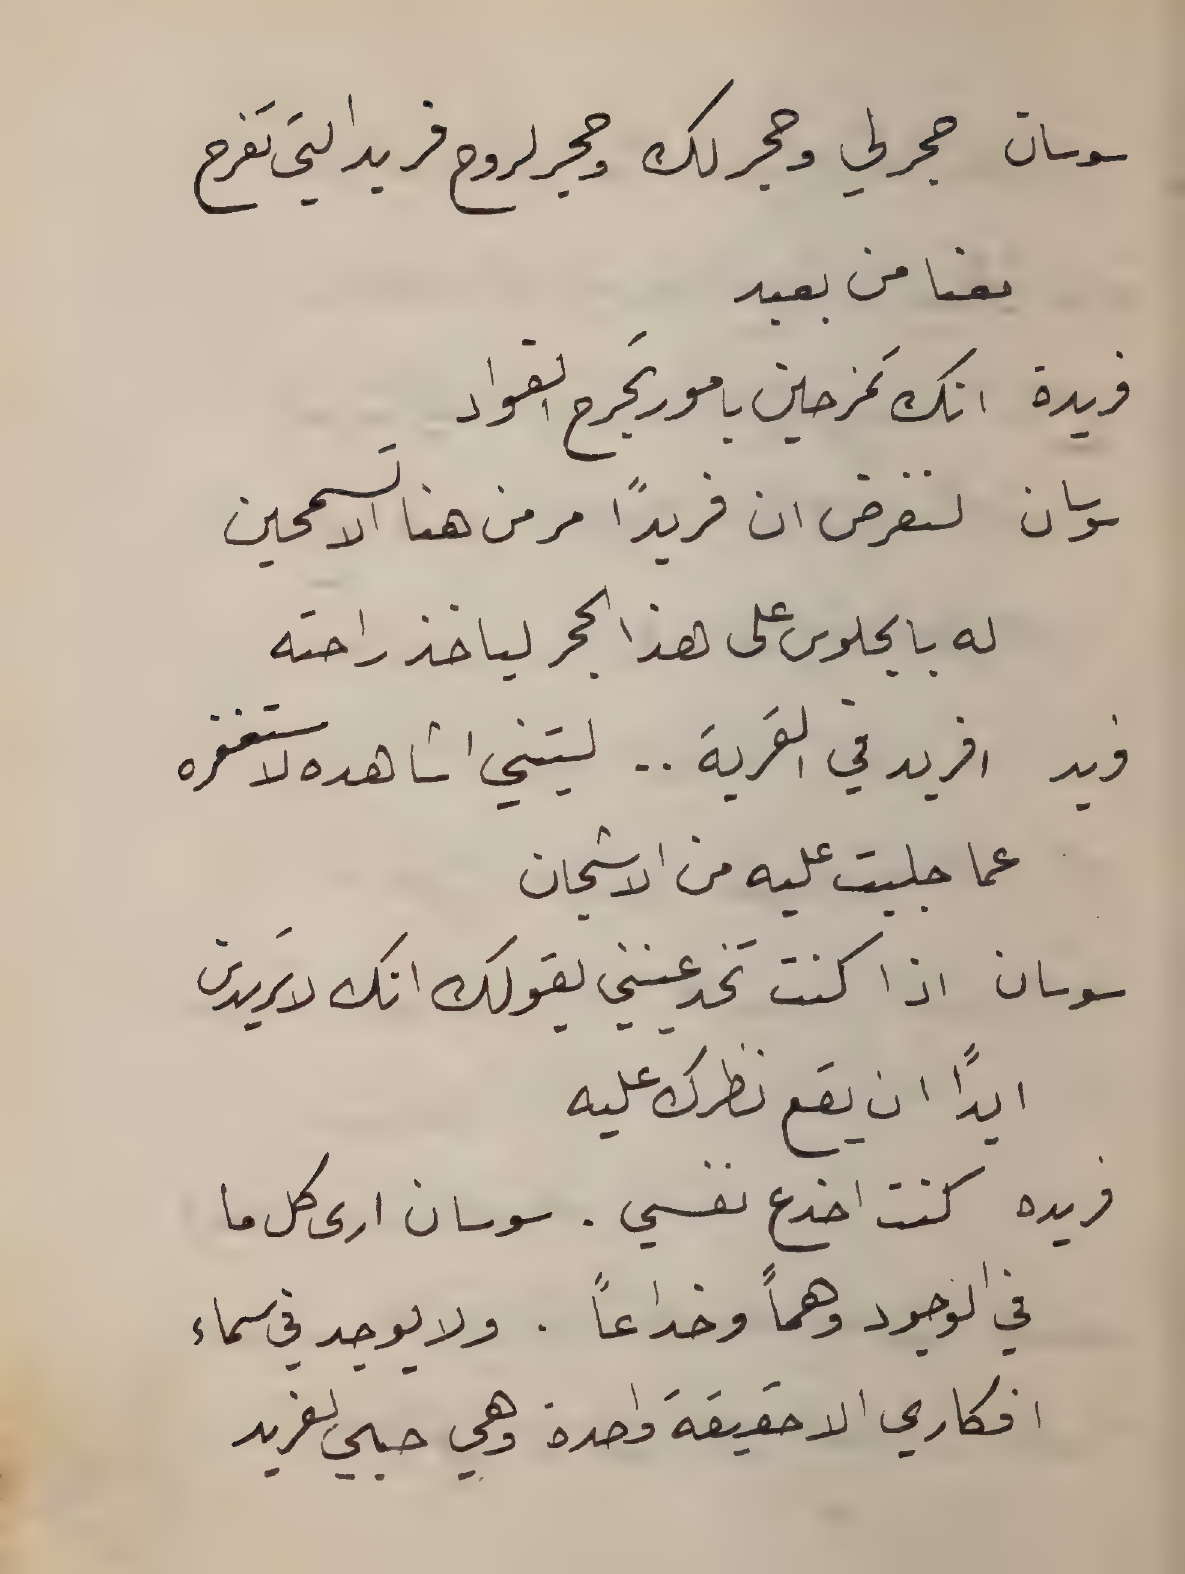 سوسان حجر لي وحجر لك وحجر لروح فريد التي تفرح
معنا من بعيد
فريدة انك تمزحين بامور تجرح الفواد
سوسان لنفرض ان فريدًا مر من هنا الا تسمحين
له بالجلوس على هذا الحجر لياخذ راحته
فريد افريد في القرية .. ليتني اشاهده لاستغفره
عما جلبت عليه من الاشجان
سوسان اذا كنت تخدعينني بقولك انك لا تريدين
ابدًا ان يقع نظرك عليه
فريده كنت اخدع نفسي . سوسان ارى كل ما
في الوجود وهماً وخداعاً . ولا يوجد في سماء
افكاري الا حقيقة واحدة وهي حبي لفريد